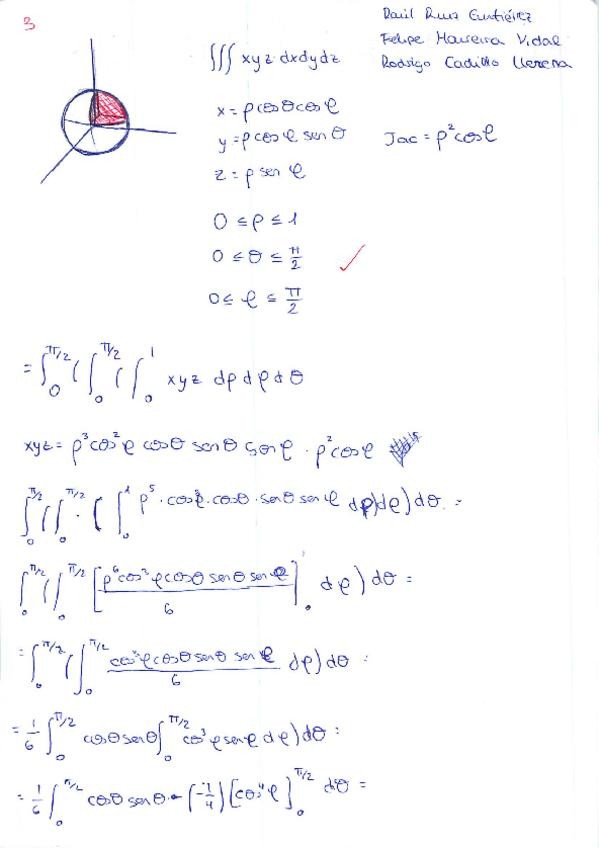 3
Raúl Ruiz Gutiérrez
Felipe Maureira Vidal
Rodrigo Cadillo Llerena
∭ xyz dxdydz
x = ρ cosθ cosφ
y = ρ cosφ senθ
Jac = ρ² cosφ
z = ρ sen φ
0 ≤ ρ ≤ 1
0 ≤ θ ≤ π/2
0 ≤ φ ≤ π/2
= ∫₀^{π/2} ( ∫₀^{π/2} ( ∫₀^1 xyz dρ dφ dθ
xyz = ρ³ cos²φ cosθ senθ senφ · ρ² cosφ
∫₀^{π/2} ( ∫₀^{π/2} · ( ∫₀^1 ρ⁵ · cos³φ · cosθ · senθ senφ dρ) dφ) dθ =
∫₀^{π/2} ( ∫₀^{π/2} [ρ⁶ cos³φ cosθ senθ senφ / 6]₀^1 dφ ) dθ =
= ∫₀^{π/2} ( ∫₀^{π/2} cos³φ cosθ senθ senφ / 6 dφ) dθ =
= 1/6 ∫₀^{π/2} cosθ senθ ∫₀^{π/2} cos³φ senφ dφ) dθ =
= 1/6 ∫₀^{π/2} cosθ senθ · (-1/4) [cos⁴φ]₀^{π/2} dθ =